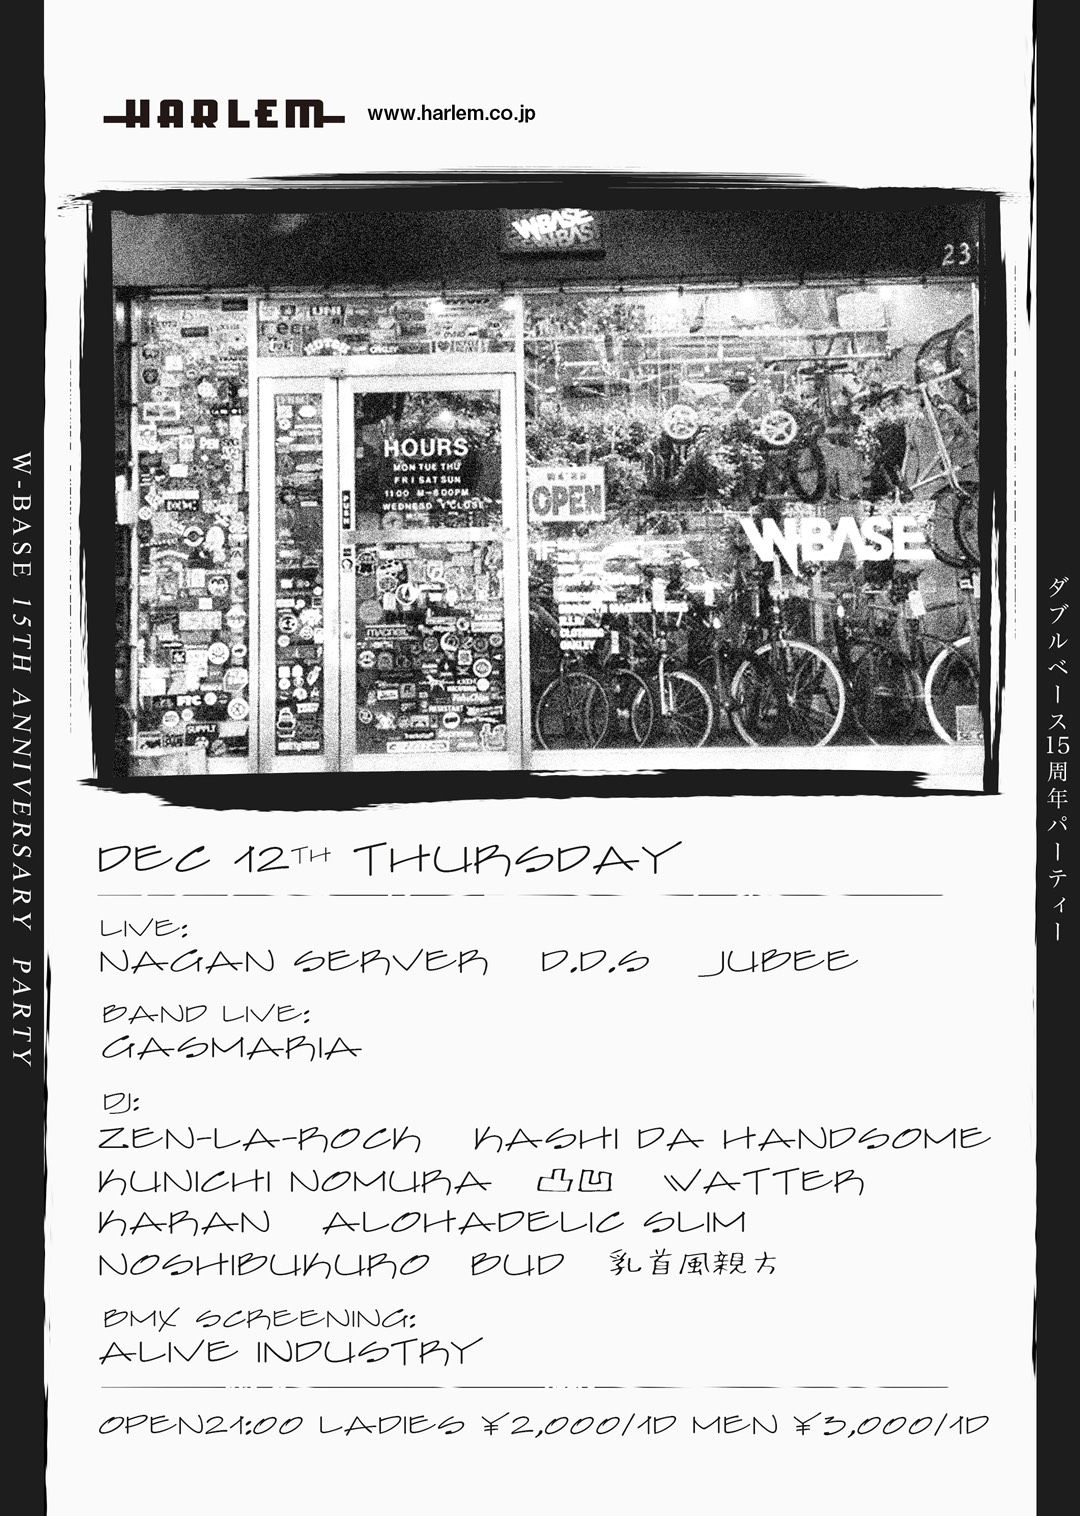 HARLEM www.harlem.co.jp
WBASE
23
HOURS
MON TUE THU
FRI SAT SUN
OPEN
WBASE
W-BASE 15TH ANNIVERSARY PARTY
ダブルベース15周年パーティー
DEC 12TH THURSDAY
LIVE:
NAGAN SERVER D.D.S JUBEE
BAND LIVE:
GASMARIA
DJ:
ZEN-LA-ROCK KASHI DA HANDSOME
KUNICHI NOMURA 凸凹 WATTER
KARAN ALOHADELIC SLIM
NOSHIBUKURO BUD 乳首風親方
BMX SCREENING:
ALIVE INDUSTRY
OPEN21:00 LADIES ¥2,000/1D MEN ¥3,000/1D